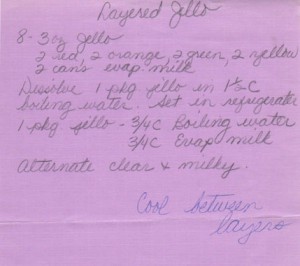 Layered Jello
8 - 3 oz Jello
2 red, 2 orange, 2 green, 2 yellow
2 cans evap. milk
Dissolve 1 pkg jello in 1½ C
boiling water. Set in refrigerator
1 pkg. jello - 3/4 C Boiling water
3/4 C Evap milk
Alternate clear & milky.
Cool between
layers